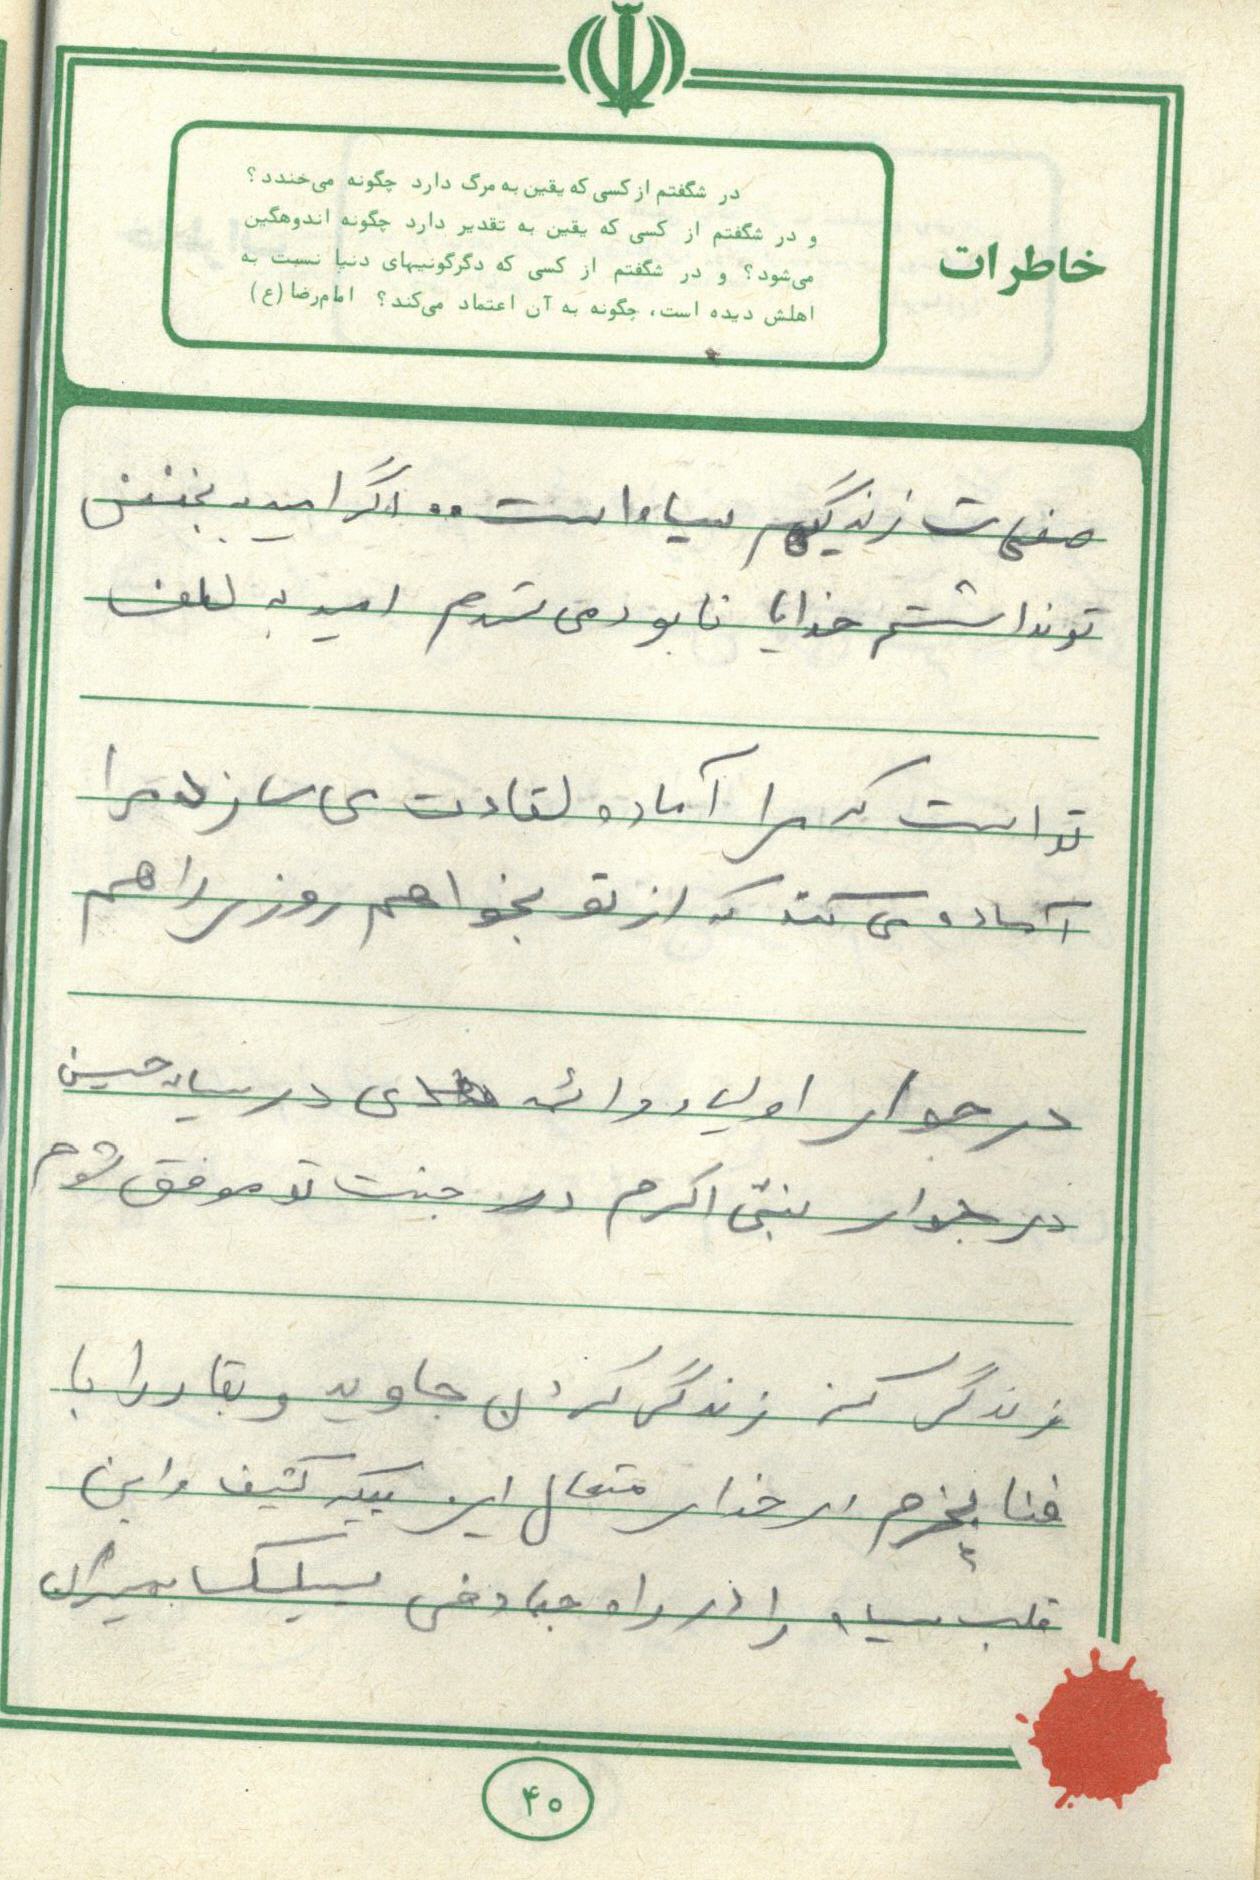 خاطرات
در شگفتم از کسی که یقین به مرگ دارد چگونه می‌خندد؟
و در شگفتم از کسی که یقین به تقدیر دارد چگونه اندوهگین
می‌شود؟ و در شگفتم از کسی که دگرگونیهای دنیا نسبت به
اهلش دیده است، چگونه به آن اعتماد می‌کند؟ امام‌رضا (ع)
صفحات زندگیم سیاه است .. اگر امید به بخشش
تو نداشتم خدایا نابود می شدم امید به لطف
تو است که مرا آماده لقاءت می سازد مرا
آماده می کند که از تو بخواهم روزی را هم
در جوار اولیاء و ائمه هدی در سپاه حسین
در جوار نبی اکرم در جنت تو موفق شوم
زندگی کنم زندگی کردن جاوید و بقاء را با
فنا بخرم ای خدای متعال این کثیف و این
قلب سیاه را در راه جهاد فی سبیلک بمیران
۴۰